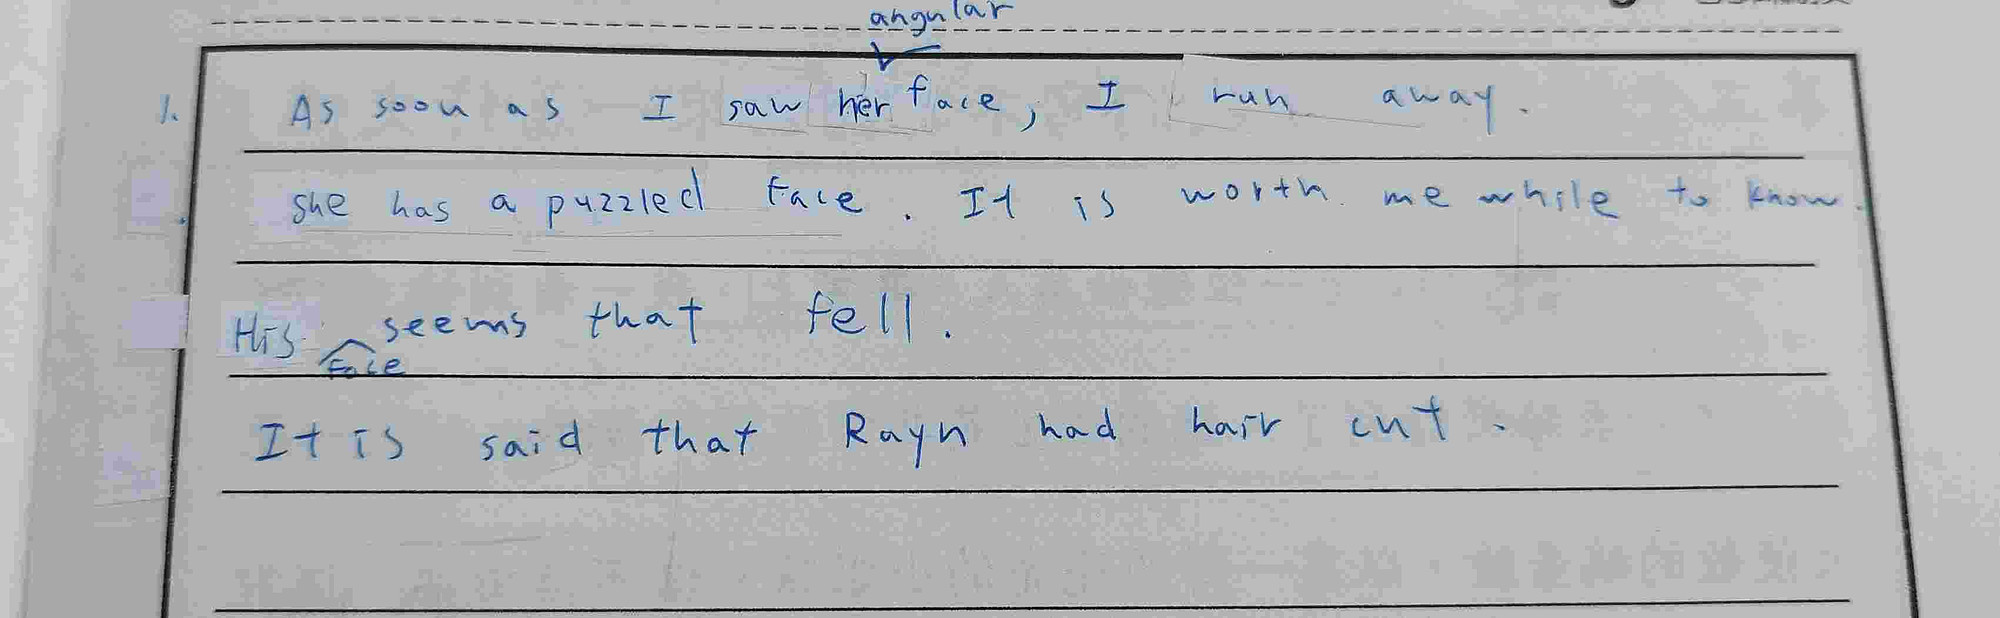 angular
1. As soon as I saw her face, I run away.
she has a puzzled face. It is worth me while to know.
His seems that fell.
face
It is said that Rayn had hair cut.